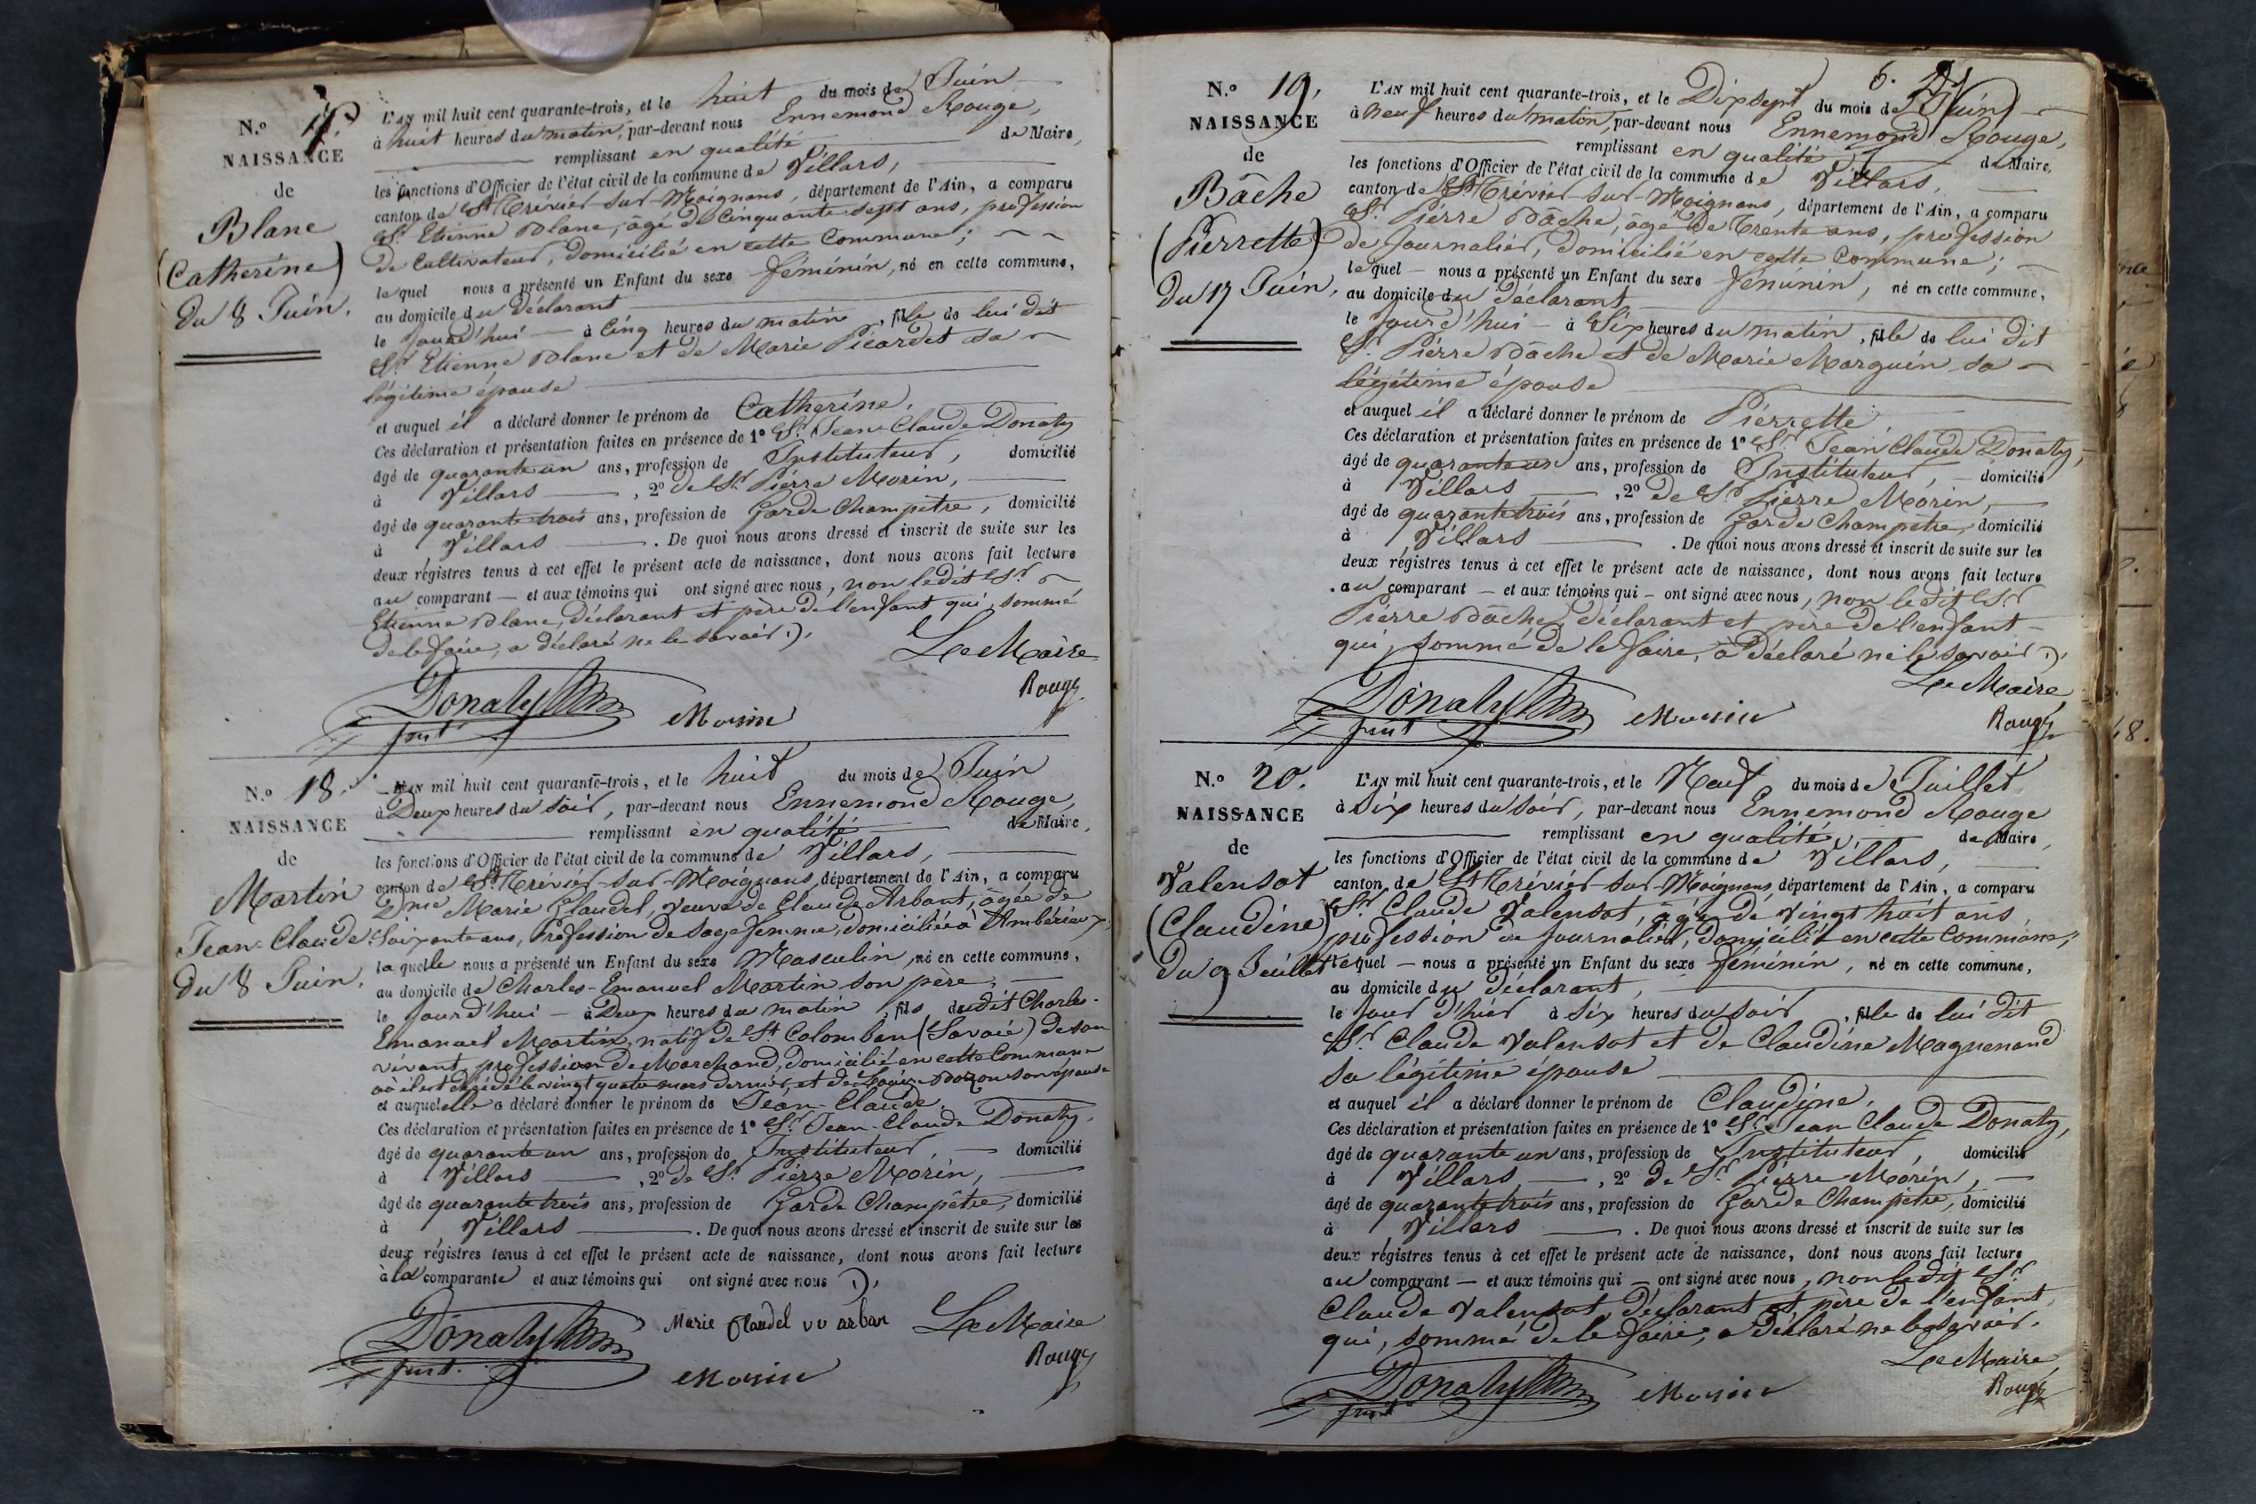 N.º 17.
NAISSANCE
de
Blanc
(Catherine)
du 8 Juin.
L'AN mil huit cent quarante-trois, et le huit du mois de Juin
à huit heures du matin, par-devant nous Ennemond Rouge,
remplissant en qualité de Maire,
les fonctions d'Officier de l'état civil de la commune de Villars,
canton de St Trivier-sur-Moignans, département de l'Ain, a comparu
Sr. Etienne Blanc, âgé de Cinquante-sept ans, profession
de Cultivateur, domicilié en cette Commune;
lequel nous a présenté un Enfant du sexe féminin, né en cette commune,
au domicile du déclarant
le jourd'hui à Cinq heures du matin, fille de lui dit
Sr. Etienne Blanc et de Marie Picardet sa
légitime épouse
et auquel il a déclaré donner le prénom de Catherine.
Ces déclaration et présentation faites en présence de 1º Sr. Jean-Claude Donaty
âgé de quarante un ans, profession de Instituteur, domicilié
à Villars, 2º de Sr. Pierre Morin,
âgé de quarante trois ans, profession de Garde Champêtre, domicilié
à Villars. De quoi nous avons dressé et inscrit de suite sur les
deux régistres tenus à cet effet le présent acte de naissance, dont nous avons fait lecture
au comparant — et aux témoins qui ont signé avec nous, non ledit Sr.
Etienne Blanc, déclarant et père de l'enfant qui, sommé
de le faire, a déclaré ne le savoir.
Le Maire
Rouge
Donaty
Morin
N.º 18.
NAISSANCE
de
Martin
Jean-Claude
du 8 Juin.
L'AN mil huit cent quarante-trois, et le huit du mois de Juin
à Deux heures du soir, par-devant nous Ennemond Rouge,
remplissant en qualité de Maire,
les fonctions d'Officier de l'état civil de la commune de Villars,
canton de St Trivier-sur-Moignans, département de l'Ain, a comparu
Dme Marie Glaudel, veuve de Claude Arbant, âgée de
Soixante ans, Profession de Sage femme, domiciliée à Ambérieux,
laquelle nous a présenté un Enfant du sexe Masculin, né en cette commune,
au domicile de Charles-Emanuel Martin son père,
le jourd'hui — à Deux heures du matin, fils dudit Charles-
Emanuel Martin, natif de St Colomban (Savoie) de son
vivant profession de Marchand, domicilié en cette Commune
où il est décédé le vingt quatre mars dernier, et de son épouse
et auquel elle a déclaré donner le prénom de Jean-Claude.
Ces déclaration et présentation faites en présence de 1º Sr. Jean-Claude Donaty,
âgé de quarante un ans, profession de Instituteur, domicilié
à Villars, 2º de Sr. Pierre Morin,
âgé de quarante trois ans, profession de Garde Champêtre, domicilié
à Villars. De quoi nous avons dressé et inscrit de suite sur les
deux régistres tenus à cet effet le présent acte de naissance, dont nous avons fait lecture
à la comparante et aux témoins qui ont signé avec nous.
Donaty
Marie Glaudel vv arban
Le Maire
Rouge
Morin
6.
N.º 19.
NAISSANCE
de
Bâche
(Pierrette)
du 17 Juin.
L'AN mil huit cent quarante-trois, et le Dix sept du mois de Juin
à Neuf heures du matin, par-devant nous Ennemond Rouge,
remplissant en qualité de Maire,
les fonctions d'Officier de l'état civil de la commune de Villars,
canton de St Trivier-sur-Moignans, département de l'Ain, a comparu
Sr. Pierre Bâche, âgé de Trente ans, profession
de Journalier, domicilié en cette Commune;
lequel — nous a présenté un Enfant du sexe féminin, né en cette commune,
au domicile du déclarant
le jourd'hui — à Six heures du matin, fille de lui dit
Sr. Pierre Bâche et de Marie Marguin sa
légitime épouse
et auquel il a déclaré donner le prénom de Pierrette
Ces déclaration et présentation faites en présence de 1º Sr. Jean Claude Donaty,
âgé de quarante un ans, profession de Instituteur, domicilié
à Villars, 2º de Sr. Pierre Morin,
âgé de quarante trois ans, profession de Garde Champêtre, domicilié
à Villars. De quoi nous avons dressé et inscrit de suite sur les
deux régistres tenus à cet effet le présent acte de naissance, dont nous avons fait lecture
au comparant — et aux témoins qui — ont signé avec nous, non ledit Sr.
Pierre Bâche, déclarant et père de l'enfant
qui, sommé de le faire, a déclaré ne le savoir.
Le Maire
Rouge
Donaty
Morin
N.º 20.
NAISSANCE
de
Valensot
(Claudine)
du 9 Juillet
L'AN mil huit cent quarante-trois, et le Neuf du mois de Juillet
à Six heures du soir, par-devant nous Ennemond Rouge
remplissant en qualité de Maire,
les fonctions d'Officier de l'état civil de la commune de Villars,
canton de St Trivier-sur-Moignans, département de l'Ain, a comparu
Sr. Claude Valensot, âgé de vingt huit ans,
profession de journalier, domicilié en cette Commune,
lequel — nous a présenté un Enfant du sexe féminin, né en cette commune,
au domicile du déclarant,
le jour d'hier à six heures du soir, fille de lui dit
Sr. Claude Valensot et de Claudine Magnenand
sa légitime épouse
et auquel il a déclaré donner le prénom de Claudine.
Ces déclaration et présentation faites en présence de 1º Sr. Jean Claude Donaty,
âgé de quarante un ans, profession de Instituteur, domicilié
à Villars, 2º de Sr. Pierre Morin,
âgé de quarante trois ans, profession de Garde Champêtre, domicilié
à Villars. De quoi nous avons dressé et inscrit de suite sur les
deux régistres tenus à cet effet le présent acte de naissance, dont nous avons fait lecture
au comparant — et aux témoins qui — ont signé avec nous, non ledit Sr.
Claude Valensot, déclarant et père de l'enfant,
qui, sommé de le faire, a déclaré ne le savoir.
Le Maire,
Rouge
Donaty
Morin